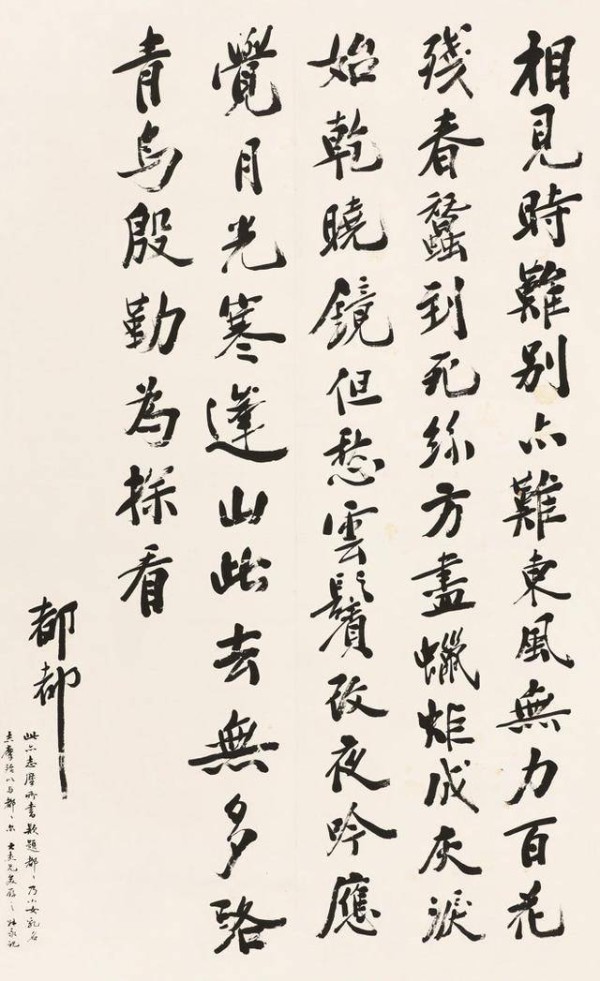 相見時難別亦難東風無力百花
殘春蠶到死絲方盡蠟炬成灰淚
始乾曉鏡但愁雲鬢改夜吟應
覺月光寒蓬山此去無多路
青鳥殷勤為探看
都都
此亦志摩所書款題都〻乃小女乳名
志摩 以与都〻尔